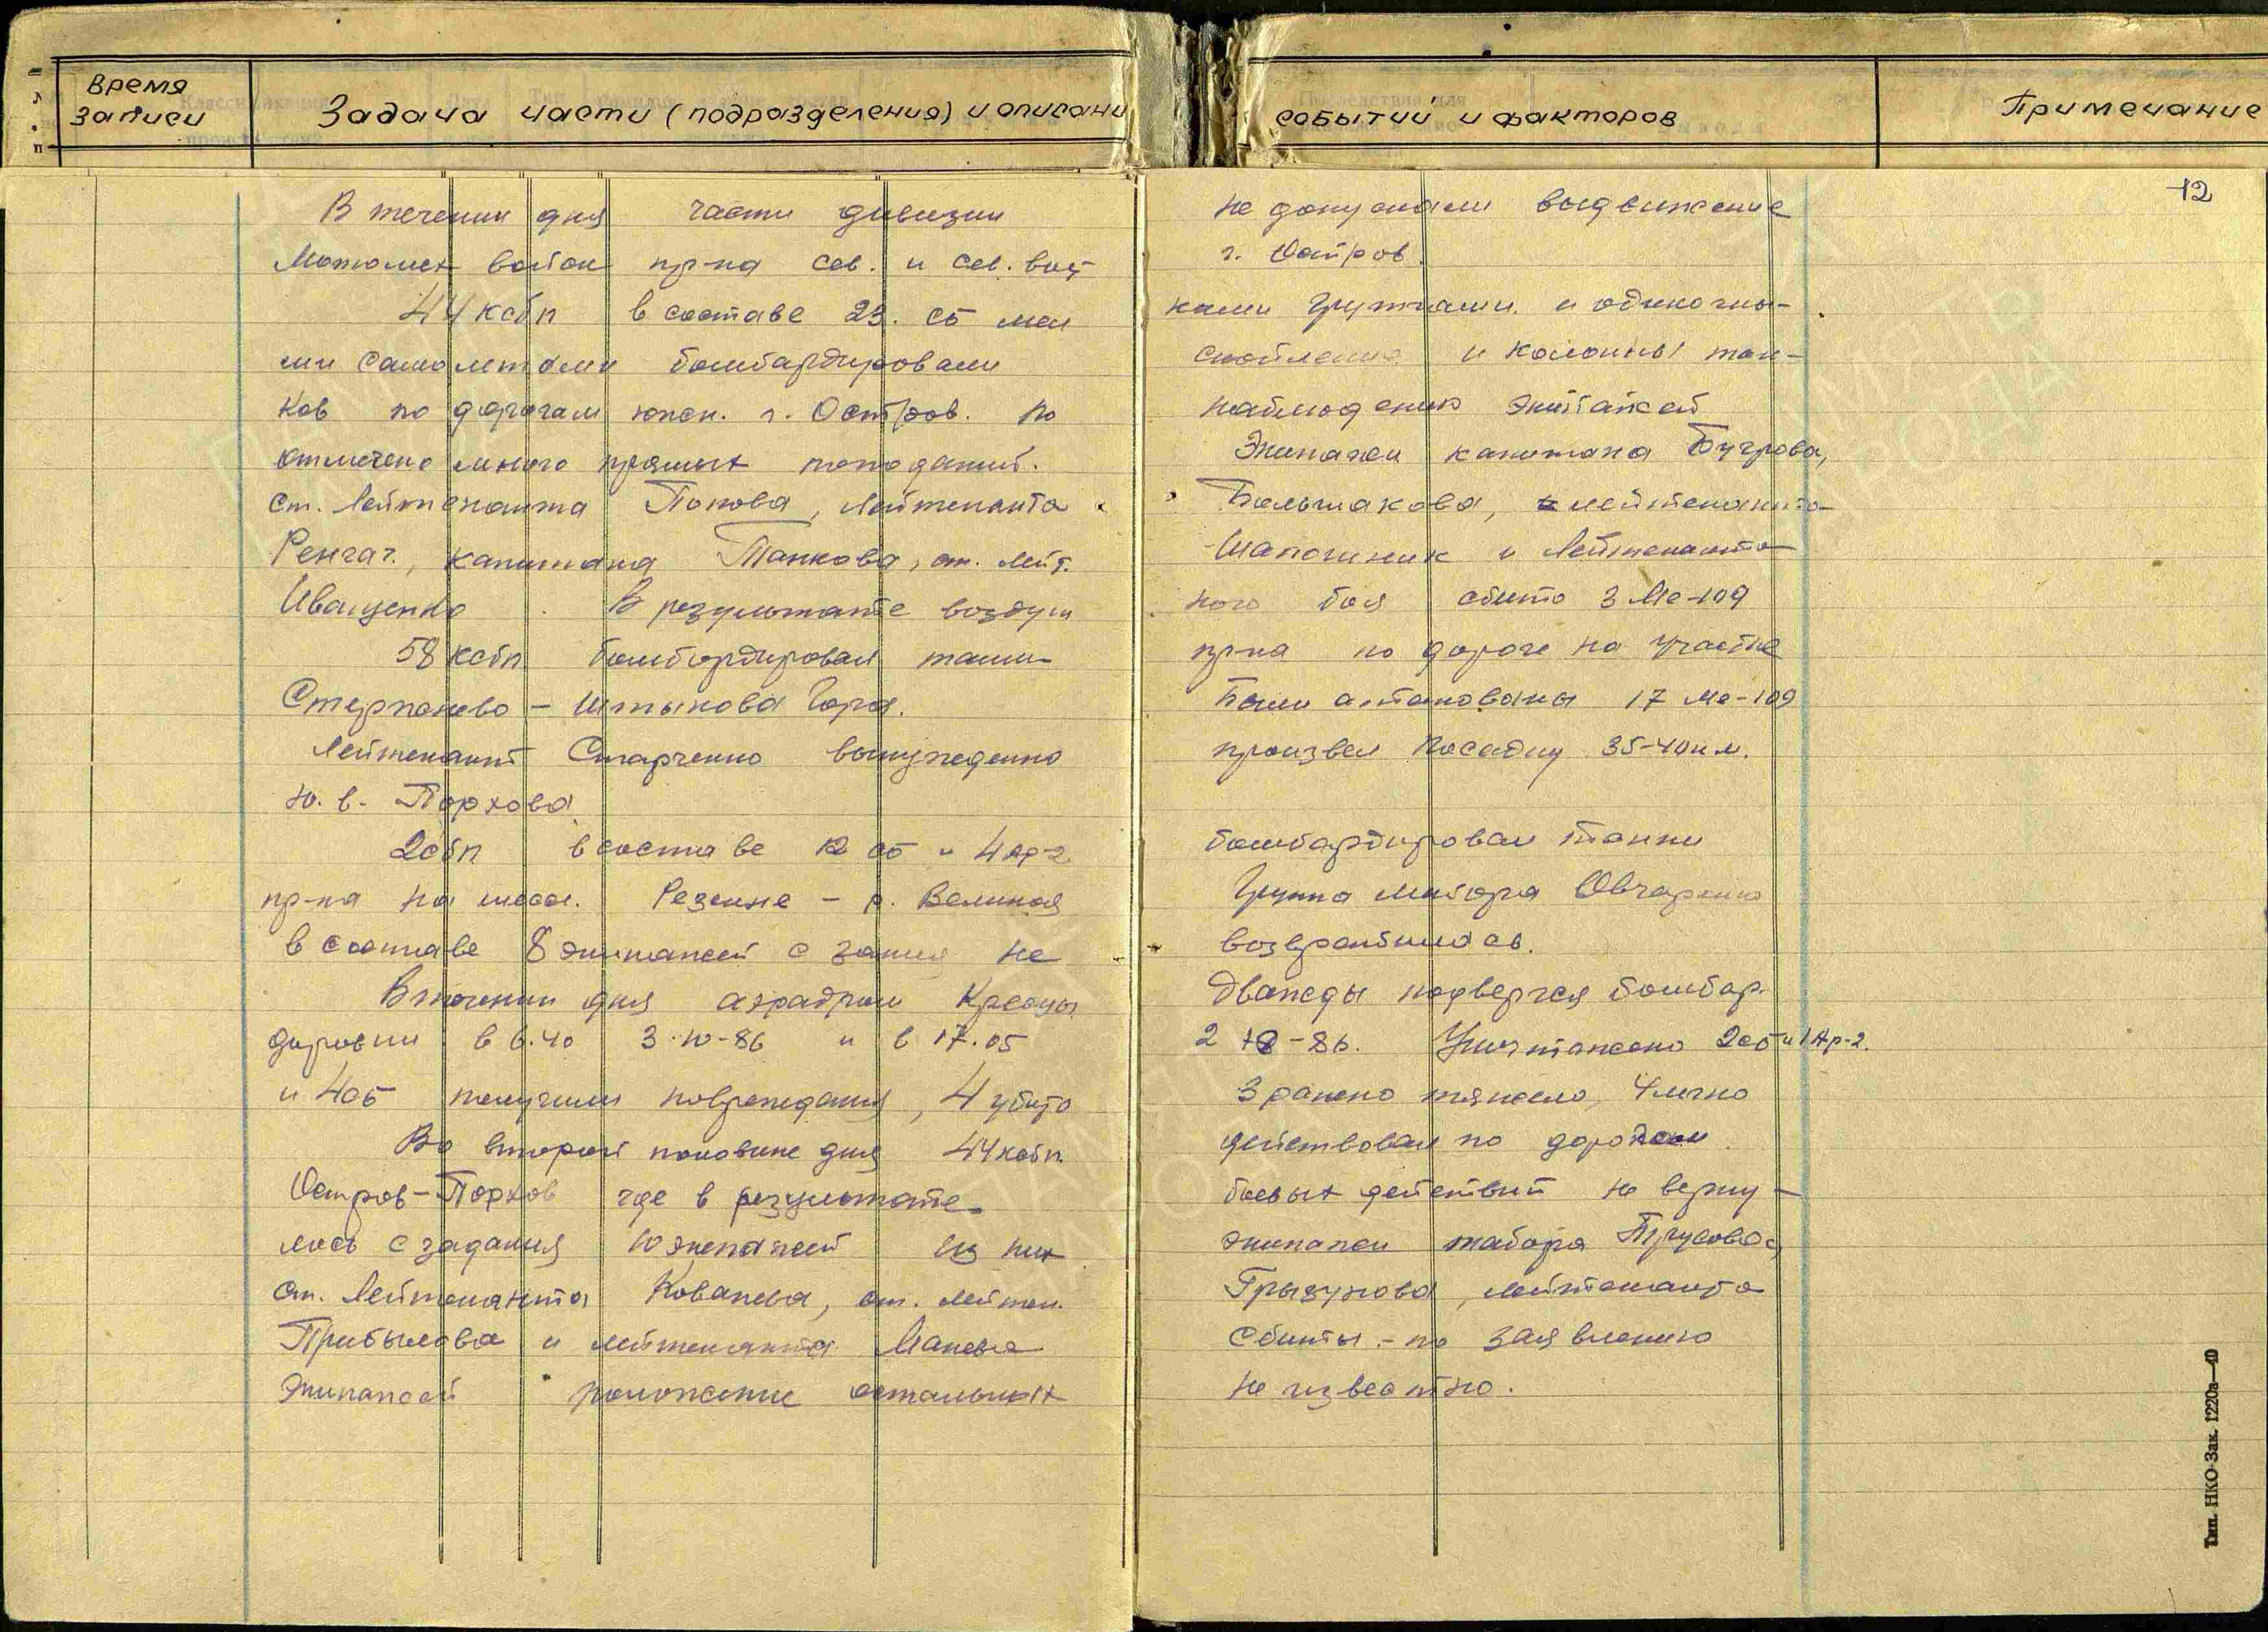 Время записи Задача части (подразделения) и описани событий и факторов Примечание
12
В течении дня части дивизии не допускали выдвижение
Мотомех войск пр-ка сев. и сев. вост г. Остров.
44 ксбп в составе 23. сб мел кими группами и одиночны-
ми самолетами бомбардировали скопление и колонны тан-
ков по дорогам южн. г. Остров. По наблюдению экипажей
отмечено много прямых попаданий. Экипажи капитана Бугрова,
ст. Лейтенанта Попова, Лейтенанта Большакова, лейтенанта
Ренгач, капитана Танкова, ст. лейт. Шапошник и Лейтенанта
Иващенко. В результате воздуш ного боя сбито 3 Ме-109
58 ксбп бомбардировал танки пр-ка по дороге на участке
Стерпанево - Штынова Гора. Были атакованы 17 Ме-109
Лейтенант Старченко вынужденно произвел посадку 35-40 км.
ю. в. Порхова
2 сбп в составе 12 сб и 4 Ар-2 бомбардировал танки
пр-ка на шоссе. Резекне - р. Великая Группа майора Овчаренко
в составе 8 экипажей с задания не возвратилась.
В течении дня аэродром Кресцы дважды подвергся бомбар-
дировки в 6.40 3 Ю-86 и в 17.05 2 Ю-86. Уничтожено 2 сб и 1 Ар-2.
и 4 сб получили повреждения, 4 убито 3 ранено тяжело, 4 легко
Во второй половине дня 44 ксбп действовал по дорогам
Остров-Порхов где в результате боевых действий не верну-
лось с задания 10 экипажей из них экипажи майора Трусова,
ст. Лейтенанта Ковалева, ст. лейтен. Грызунова, лейтенанта
Прибылова и лейтенанта Сбиты - по заявлению
Экипажей положение остальных не известно.
Тип. НКО Зак. 1220а—40